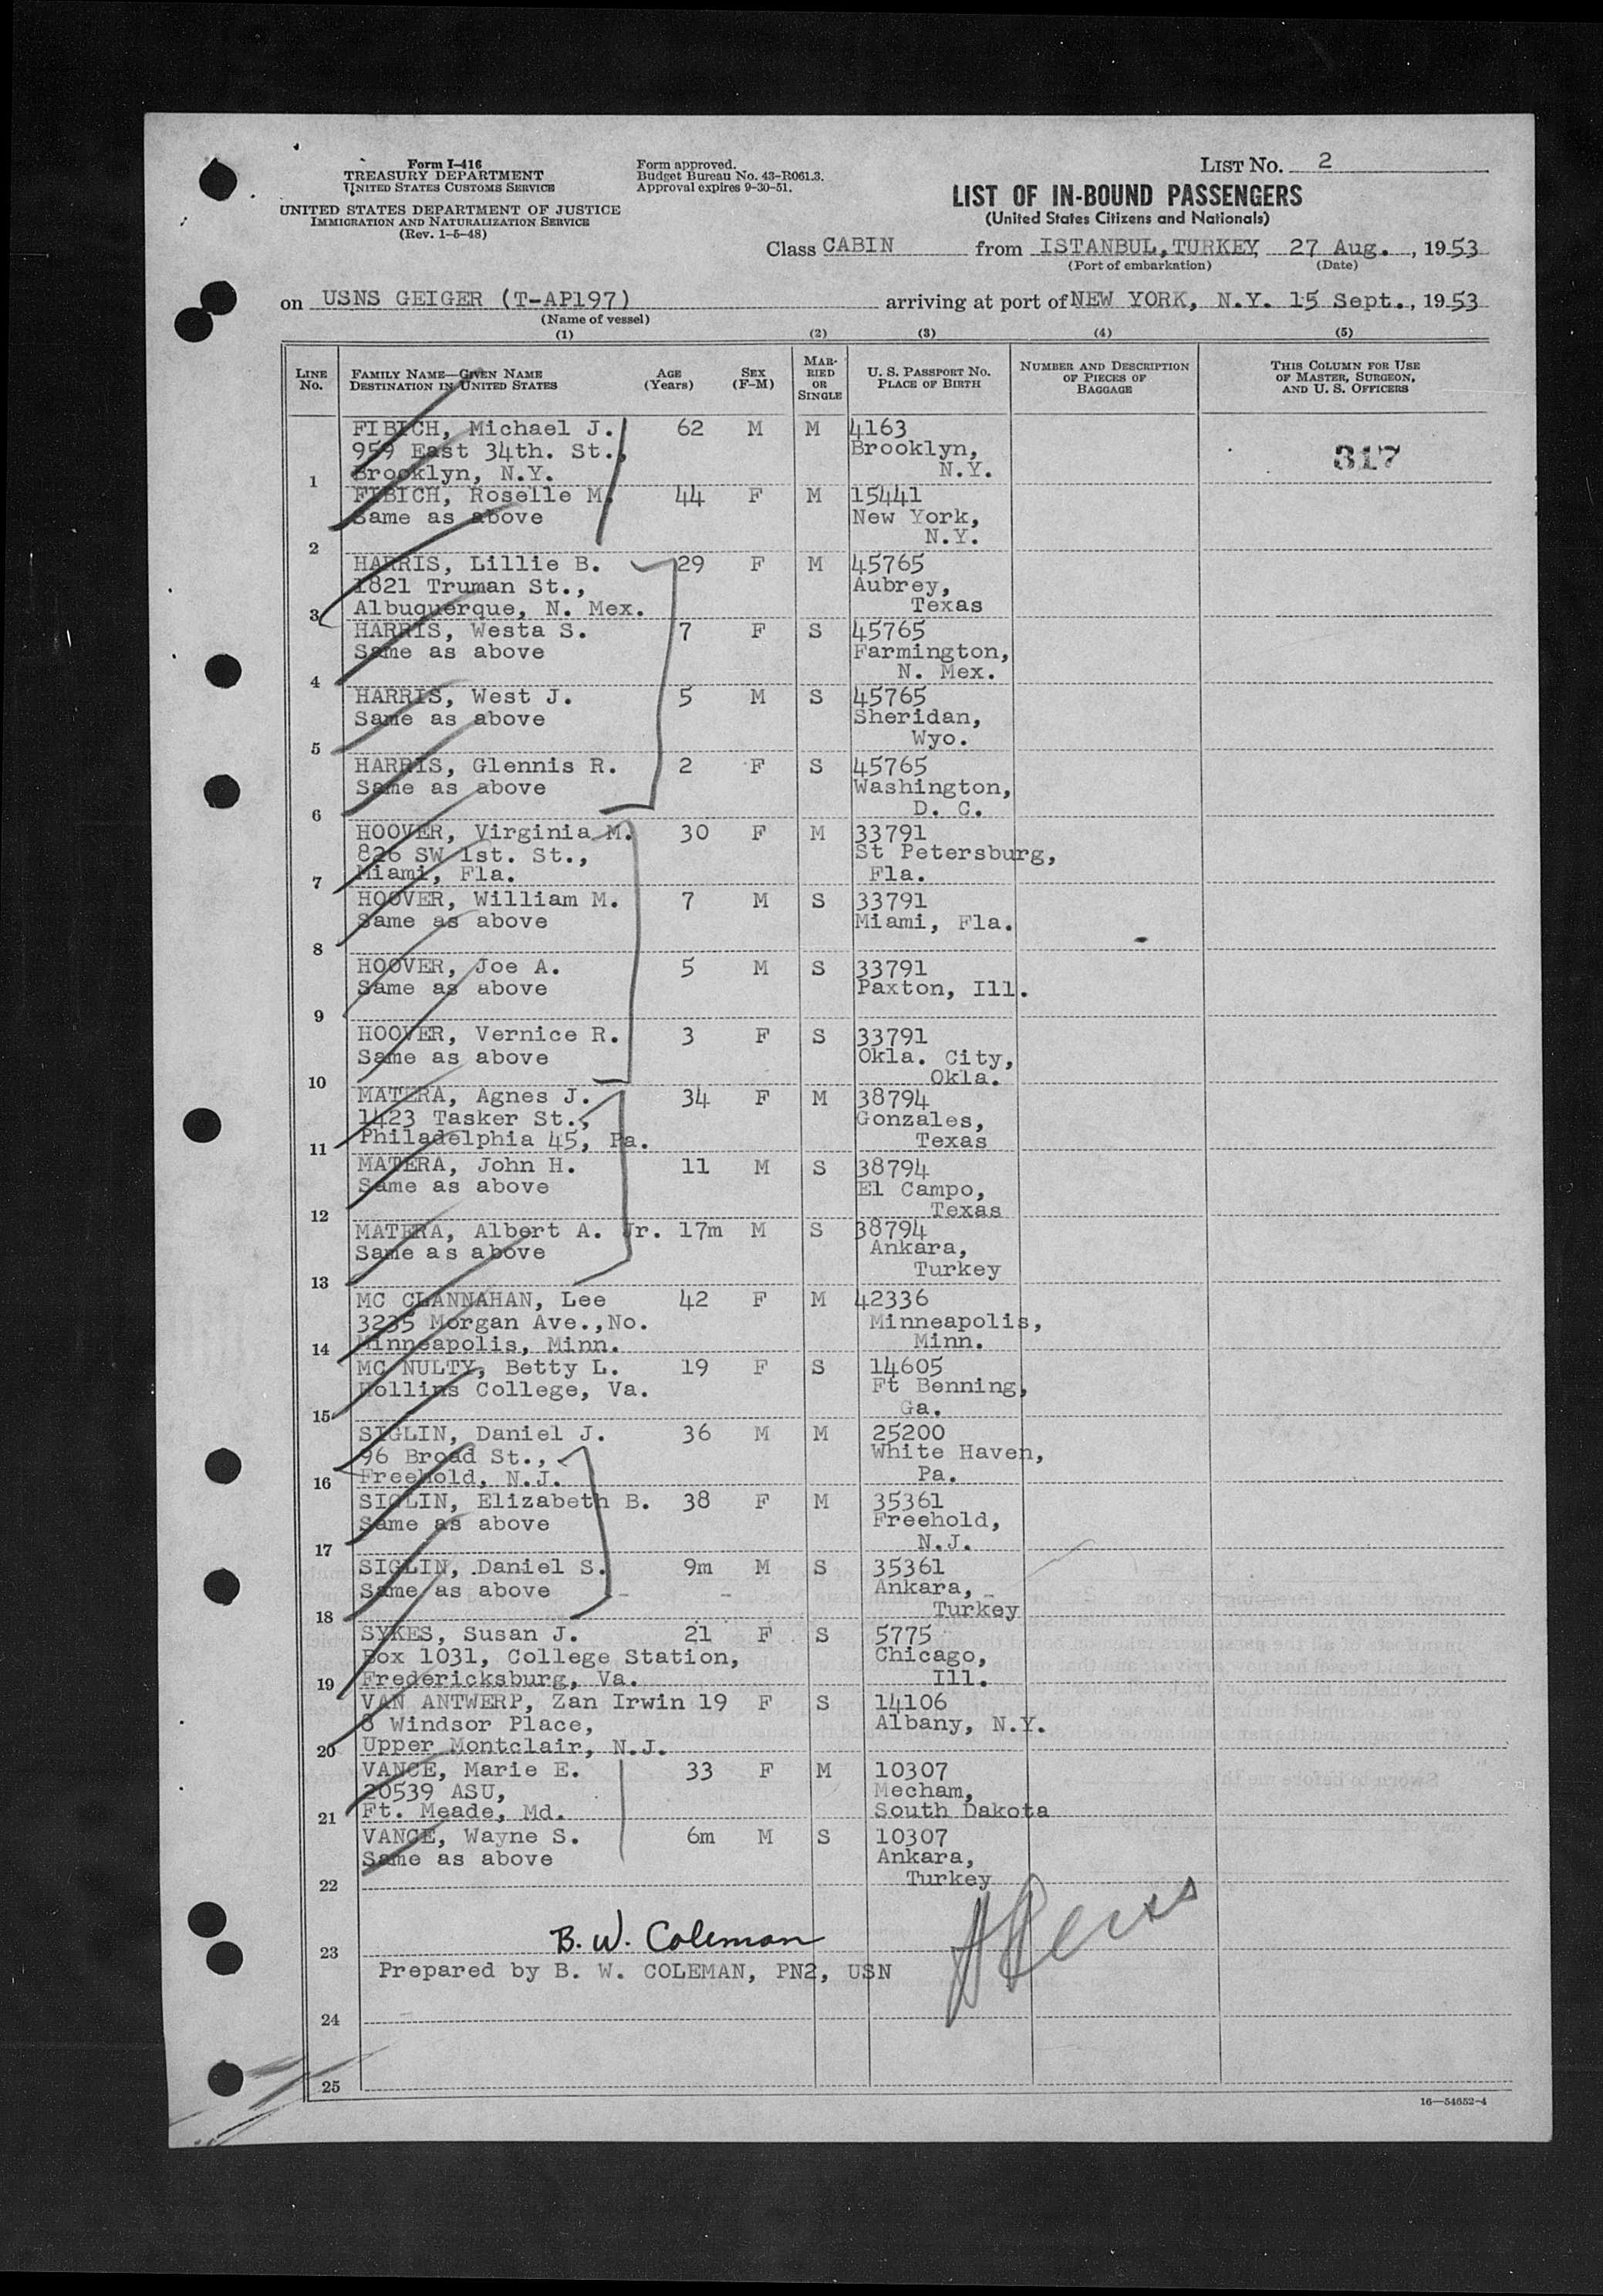 Form I-416
TREASURY DEPARTMENT
UNITED STATES CUSTOMS SERVICE
UNITED STATES DEPARTMENT OF JUSTICE
IMMIGRATION AND NATURALIZATION SERVICE
(Rev. 1-5-48)
Form approved.
Budget Bureau No. 43-R061.3.
Approval expires 9-30-51.
LIST No. 2
LIST OF IN-BOUND PASSENGERS
(United States Citizens and Nationals)
Class CABIN from ISTANBUL, TURKEY, 27 Aug., 1953
(Port of embarkation) (Date)
on USNS GEIGER (T-AP197) arriving at port of NEW YORK, N.Y. 15 Sept., 1953
(Name of vessel)
(1) (2) (3) (4) (5)
LINE No.
FAMILY NAME—GIVEN NAME
DESTINATION IN UNITED STATES
AGE (Years)
SEX (F-M)
MARRIED OR SINGLE
U. S. PASSPORT No.
PLACE OF BIRTH
NUMBER AND DESCRIPTION OF PIECES OF BAGGAGE
THIS COLUMN FOR USE OF MASTER, SURGEON, AND U. S. OFFICERS
FIBICH, Michael J. 62 M M 4163
959 East 34th. St., Brooklyn,
317
1 Brooklyn, N.Y. N.Y.
FIBICH, Roselle M. 44 F M 15441
Same as above New York,
2 N.Y.
HARRIS, Lillie B. 29 F M 45765
1821 Truman St., Aubrey,
3 Albuquerque, N. Mex. Texas
HARRIS, Westa S. 7 F S 45765
Same as above Farmington,
4 N. Mex.
HARRIS, West J. 5 M S 45765
Same as above Sheridan,
5 Wyo.
HARRIS, Glennis R. 2 F S 45765
Same as above Washington,
6 D. C.
HOOVER, Virginia M. 30 F M 33791
826 SW 1st. St., St Petersburg,
7 Miami, Fla. Fla.
HOOVER, William M. 7 M S 33791
Same as above Miami, Fla.
8
HOOVER, Joe A. 5 M S 33791
Same as above Paxton, Ill.
9
HOOVER, Vernice R. 3 F S 33791
Same as above Okla. City,
10 Okla.
MATERA, Agnes J. 34 F M 38794
1423 Tasker St., Gonzales,
11 Philadelphia 45, Pa. Texas
MATERA, John H. 11 M S 38794
Same as above El Campo,
12 Texas
MATERA, Albert A. Jr. 17m M S 38794
Same as above Ankara,
13 Turkey
MC CLANNAHAN, Lee 42 F M 42336
3235 Morgan Ave.,No. Minneapolis,
14 Minneapolis, Minn. Minn.
MC NULTY, Betty L. 19 F S 14605
Hollins College, Va. Ft Benning,
15 Ga.
SIGLIN, Daniel J. 36 M M 25200
96 Broad St., White Haven,
16 Freehold, N.J. Pa.
SIGLIN, Elizabeth B. 38 F M 35361
Same as above Freehold,
17 N.J.
SIGLIN, Daniel S. 9m M S 35361
Same as above Ankara,
18 Turkey
SYKES, Susan J. 21 F S 5775
Box 1031, College Station, Chicago,
19 Fredericksburg, Va. Ill.
VAN ANTWERP, Zan Irwin 19 F S 14106
8 Windsor Place, Albany, N.Y.
20 Upper Montclair, N.J.
VANCE, Marie E. 33 F M 10307
20539 ASU, Mecham,
21 Ft. Meade, Md. South Dakota
VANCE, Wayne S. 6m M S 10307
Same as above Ankara,
22 Turkey
B. W. Coleman
23
Prepared by B. W. COLEMAN, PN2, USN
24
25
16—54652-4